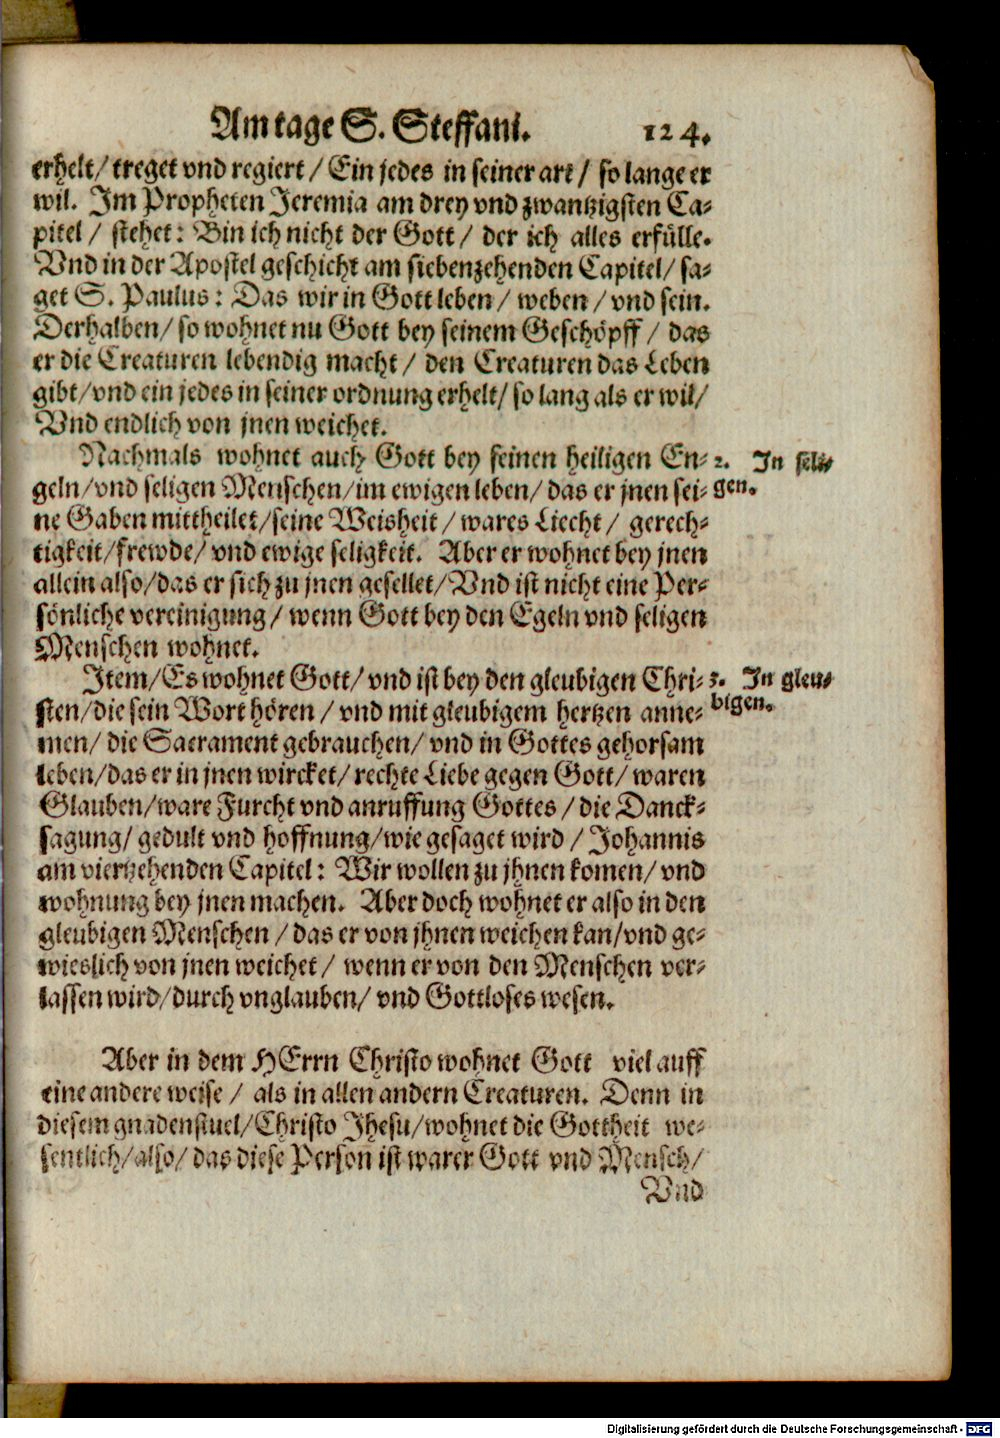 Am tage S. Steffani. 124.
erhelt/ treget vnd regiert / Ein jedes in seiner art / so lange er
wil. Im Propheten Jeremia am drey vnd zwantzigsten Ca-
pitel / stehet: Bin ich nicht der Gott / der ich alles erfülle.
Vnd in der Apostel geschicht am siebenzehenden Capitel/ sa-
get S. Paulus: Das wir in Gott leben / weben / vnd sein.
Derhalben/ so wohnet nu Gott bey seinem Geschöpff / das
er die Creaturen lebendig macht / den Creaturen das Leben
gibt/vnd ein jedes in seiner ordnung erhelt/ so lang als er wil/
Vnd endlich von jnen weichet.
Nachmals wohnet auch Gott bey seinen heiligen En- 2. In seli-
geln/vnd seligen Menschen/im ewigen leben/ das er jnen sei- gen.
ne Gaben mittheilet/seine Weisheit / wares Liecht / gerech-
tigkeit/frewde/ vnd ewige seligkeit. Aber er wohnet bey jnen
allein also/das er sich zu jnen gesellet/Vnd ist nicht eine Per-
sönliche vereinigung / wenn Gott bey den Egeln vnd seligen
Menschen wohnet.
Item/Es wohnet Gott/ vnd ist bey den gleubigen Chri- 3. In gleu-
sten/die sein Wort hören / vnd mit gleubigem hertzen anne- bigen.
men/ die Sacrament gebrauchen/ vnd in Gottes gehorsam
leben/das er in jnen wircket/ rechte Liebe gegen Gott/ waren
Glauben/ware Furcht vnd anruffung Gottes / die Danck-
sagung/ gedult vnd hoffnung/wie gesaget wird / Johannis
am viertzehenden Capitel: Wir wollen zu jhnen komen/ vnd
wohnung bey jnen machen. Aber doch wohnet er also in den
gleubigen Menschen / das er von jhnen weichen kan/vnd ge-
wieslich von jnen weichet / wenn er von den Menschen ver-
lassen wird/durch vnglauben/ vnd Gottloses wesen.
Aber in dem HErrn Christo wohnet Gott viel auff
eine andere weise / als in allen andern Creaturen. Denn in
diesem gnadenstuel/Christo Jhesu/wohnet die Gottheit we-
sentlich/also/ das diese Person ist warer Gott vnd Mensch/
Vnd
Digitalisierung gefördert durch die Deutsche Forschungsgemeinschaft - DFG